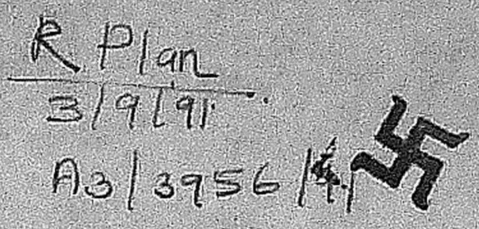 R Plan
3/9/91.
A3/3956/